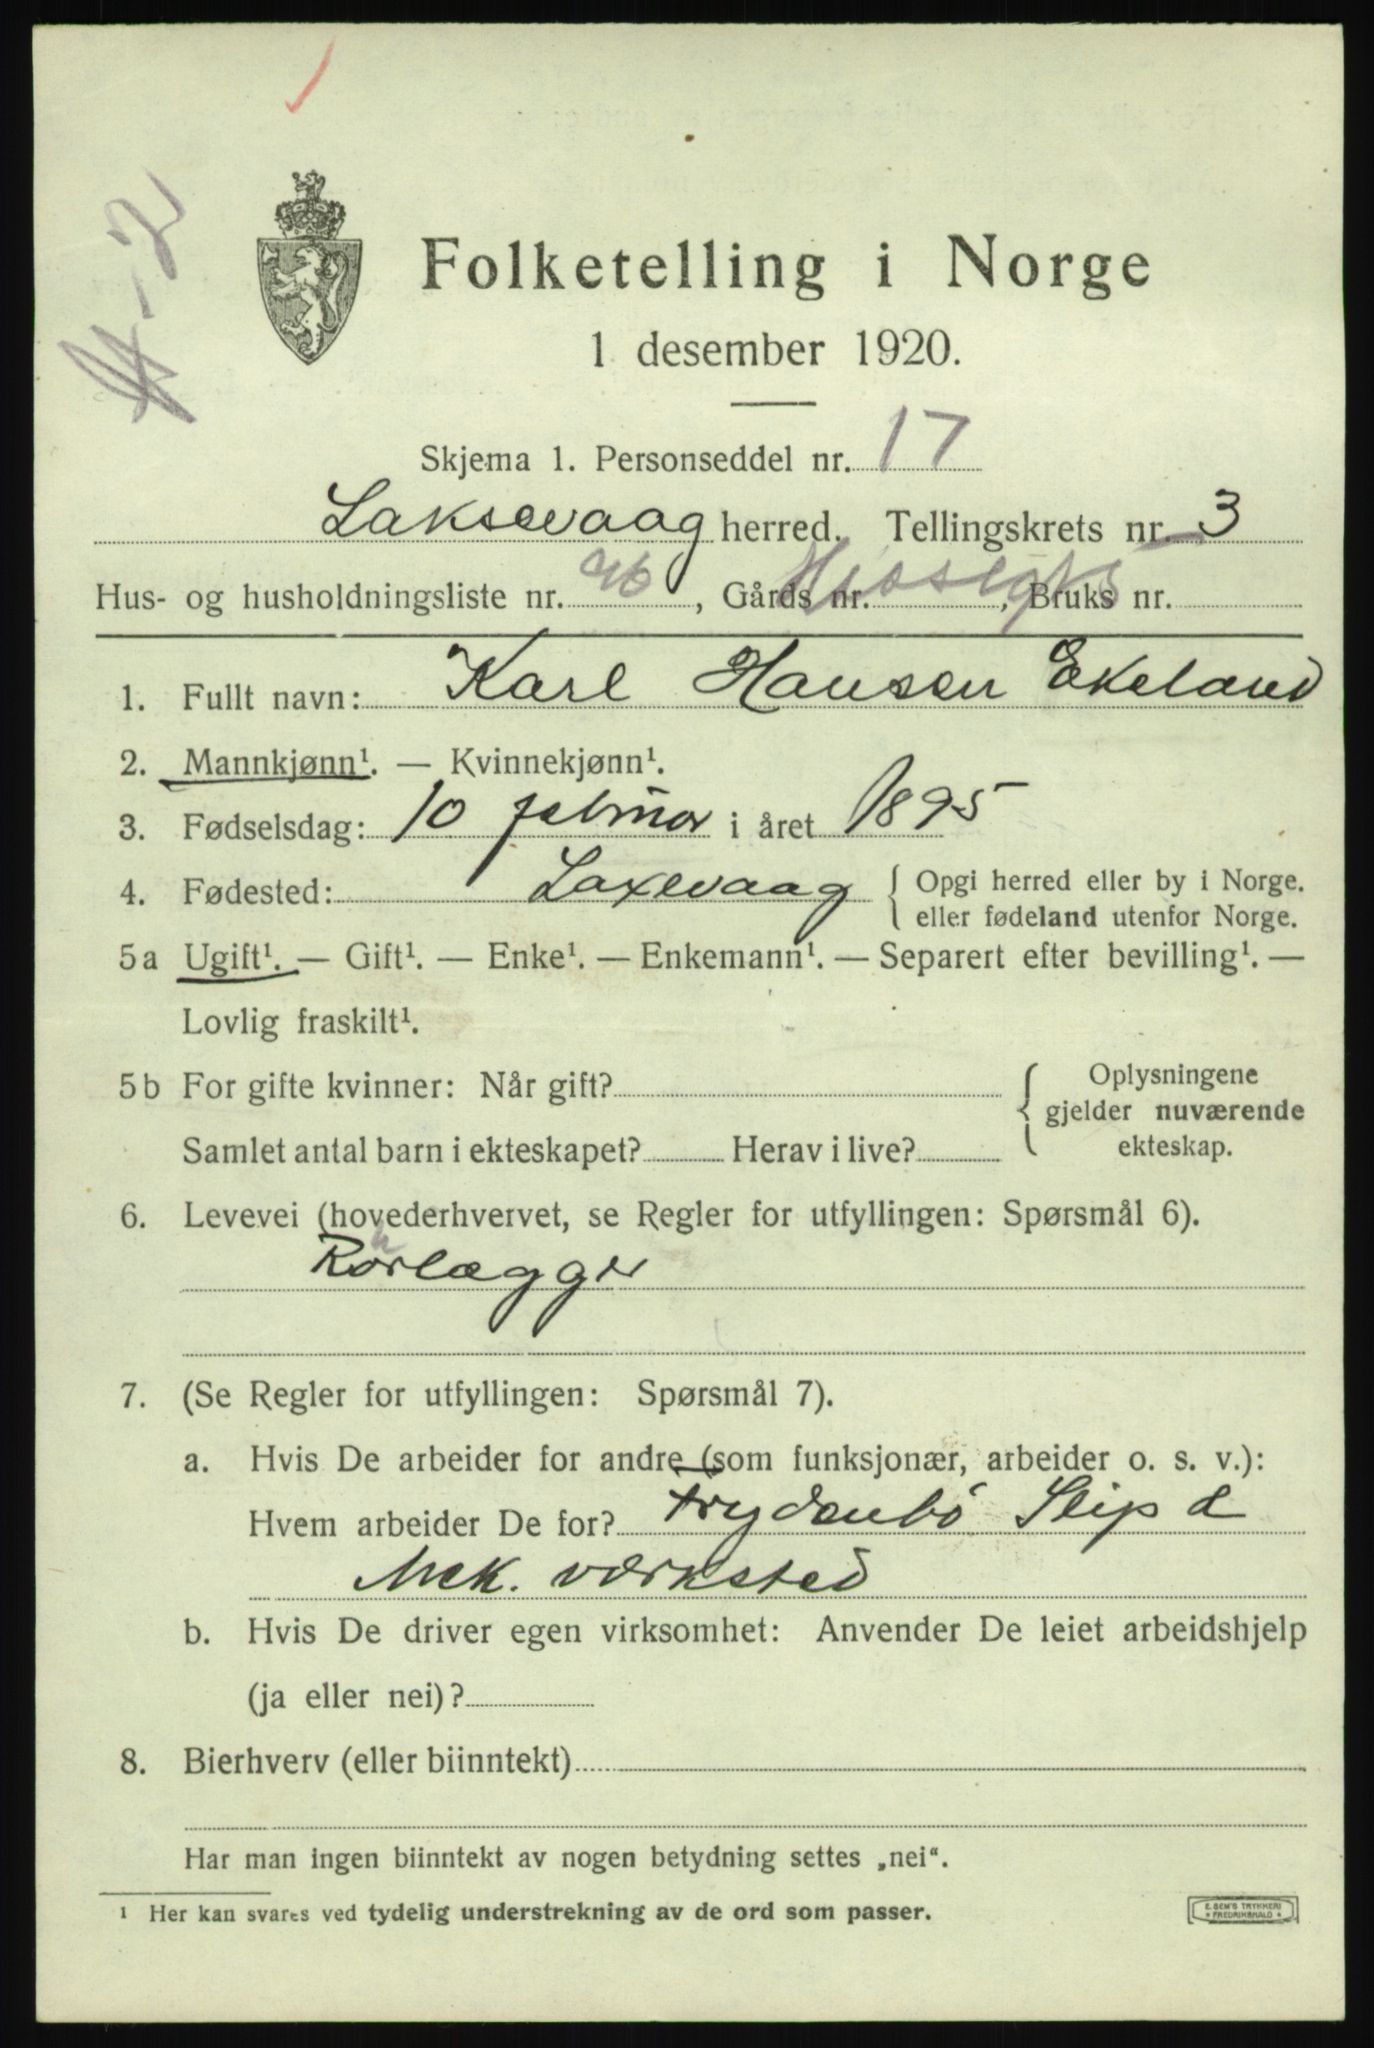 Folketelling i Norge
1 desember 1920.
Skjema 1. Personseddel nr. 17
Laksevaag herred. Tellingskrets nr. 3
Hus- og husholdningsliste nr. , Gårds nr. , Bruks nr.
1. Fullt navn: Karl Hansen Ekeland
2. Mannkjønn¹. — Kvinnekjønn¹.
3. Fødselsdag: 10 februar i året 1895
4. Fødested: Laxevaag { Opgi herred eller by i Norge.
eller fødeland utenfor Norge.
5a Ugift¹. — Gift¹. — Enke¹. — Enkemann¹. — Separert efter bevilling¹. —
Lovlig fraskilt¹.
5b For gifte kvinner: Når gift? { Oplysningene
gjelder nuværende
ekteskap.
Samlet antal barn i ekteskapet? Herav i live?
6. Levevei (hovederhvervet, se Regler for utfyllingen: Spørsmål 6).
Rørlægger
7. (Se Regler for utfyllingen: Spørsmål 7).
a. Hvis De arbeider for andre (som funksjonær, arbeider o. s. v.):
Hvem arbeider De for? Frydenbö Slip &
Mek. værksted
b. Hvis De driver egen virksomhet: Anvender De leiet arbeidshjelp
(ja eller nei)?
8. Bierhverv (eller biinntekt)
Har man ingen biinntekt av nogen betydning settes „nei“.
¹ Her kan svares ved tydelig understrekning av de ord som passer.
E. SEM'S TRYKKERI
FREDRIKSHALD